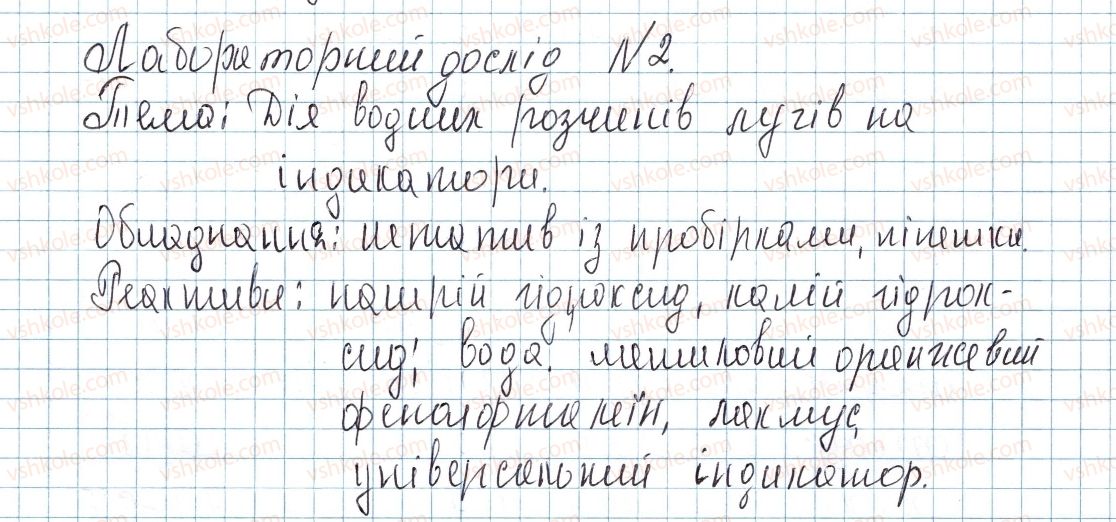 Лабораторний дослід №2.
Тема: Дія водних розчинів лугів на
індикатори.
Обладнання: штатив із пробірками, піпетки.
Реактиви: натрій гідроксид, калій гідрок-
сид; вода, метиловий оранжевий
фенолфталеїн, лакмус,
універсальний індикатор.